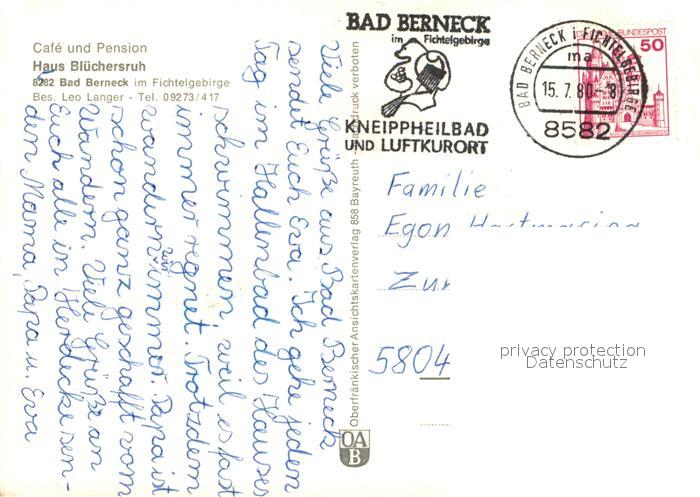 Café und Pension
Haus Blüchersruh
8582 Bad Berneck im Fichtelgebirge
Bes. Leo Langer - Tel. 09273/417
BAD BERNECK
im Fichtelgebirge
KNEIPPHEILBAD
UND LUFTKURORT
BAD BERNECK i. FICHTELGEBIRGE
ma
15.7.80.-8
8582
BUNDESPOST
50
Viele Grüße aus Bad Berneck
sendet Euch Eva. Ich gehe jeden
Tag im Hallenbad des Hauses
schwimmen, weil es fast
immer regnet. Trotzdem
wandern wir immer. Papa ist
schon ganz geschafft vom
Wandern. Viele Grüße an
Euch alle in Herdecke sen-
den Mama, Papa u. Eva
Oberfränkischer Ansichtskartenverlag 858 Bayreuth - Nachdruck verboten
OA
B
Familie
Egon
5804
privacy protection
Datenschutz